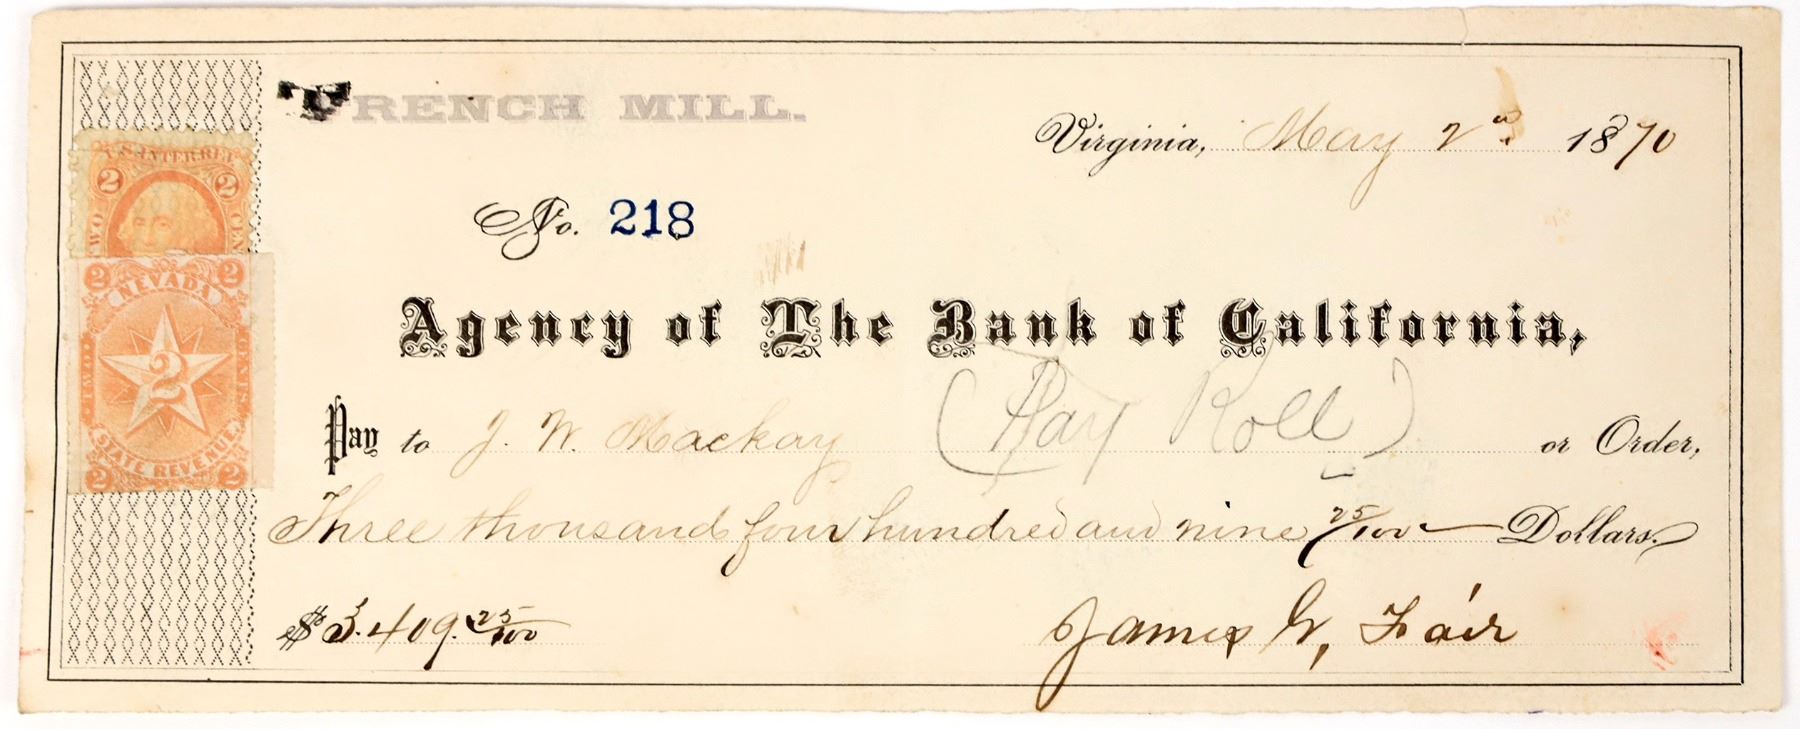 FRENCH MILL.
Virginia, May 2nd 1870
No. 218
Agency of The Bank of California,
(Pay Roll)
Pay to J. W. Mackay or Order,
Three thousand four hundred and nine 25/100 Dollars.
$3.409.25/100
James G, Fair
U.S. INTER. REV.
2 2
TWO CEN
2 2
NEVADA
TWO CENTS
2
STATE REVENUE.
2 2